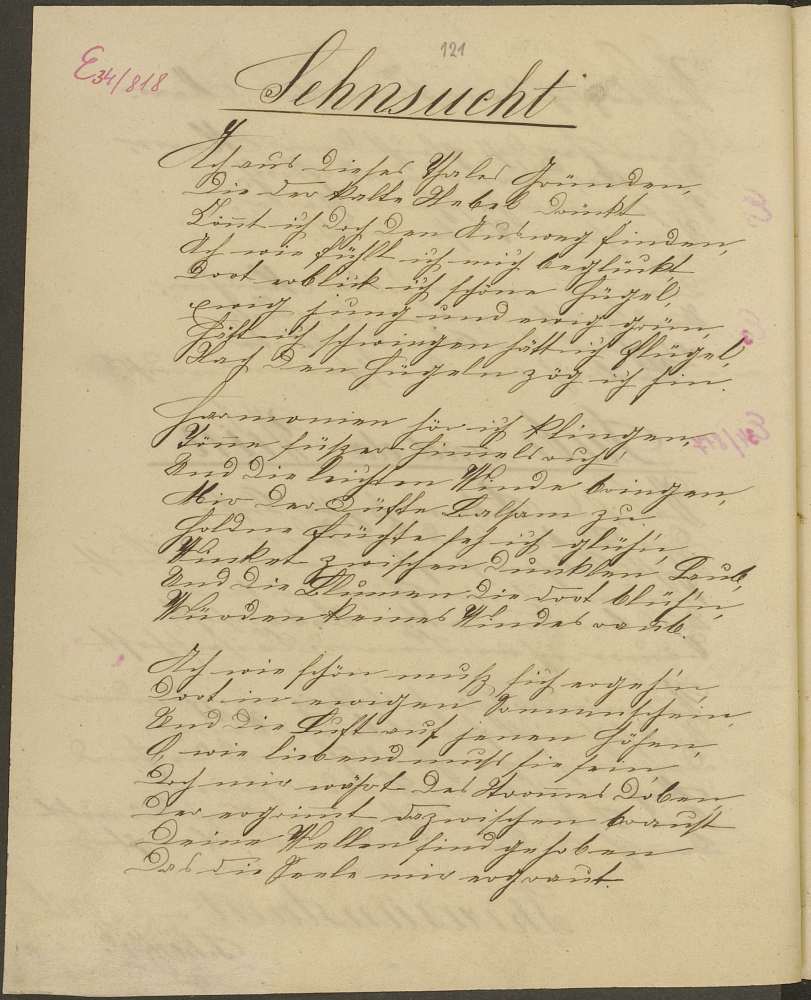 121
E34/818
Sehnsucht
Ach aus dieses Thales Gründen,
Die der kalte Nebel drückt
Könnt ich doch den Ausweg finden,
Ach wie fühlt ich mich beglückt
Dort erblick ich schöne Hügel,
Ewig jung und ewig grün,
Hätt ich schwingen hätt ich Flügel,
Nach den Hügeln zög ich hin.
Harmonien hör ich klingen,
Töne süßer Himmelsruh,
Und die leichten Winde bringen,
Mir der Düfte Balsam zu
Goldne Früchte seh ich glüh'n,
Winket zwischen dunklen Laub,
Und die Blumen die dort blüh'n,
Würden keines Windes raub.
Ach wie schön muß sich ergeh'n,
Dort in ewigen Sonnenschein,
Und die Luft auf jenen Höhen,
O, wie liebend muss sie sein
Doch mir wehrt des Stromes Toben,
Der ergrimmt dazwischen braust
Deine Wellen sind gehoben
Das die Seele mir ergraut.